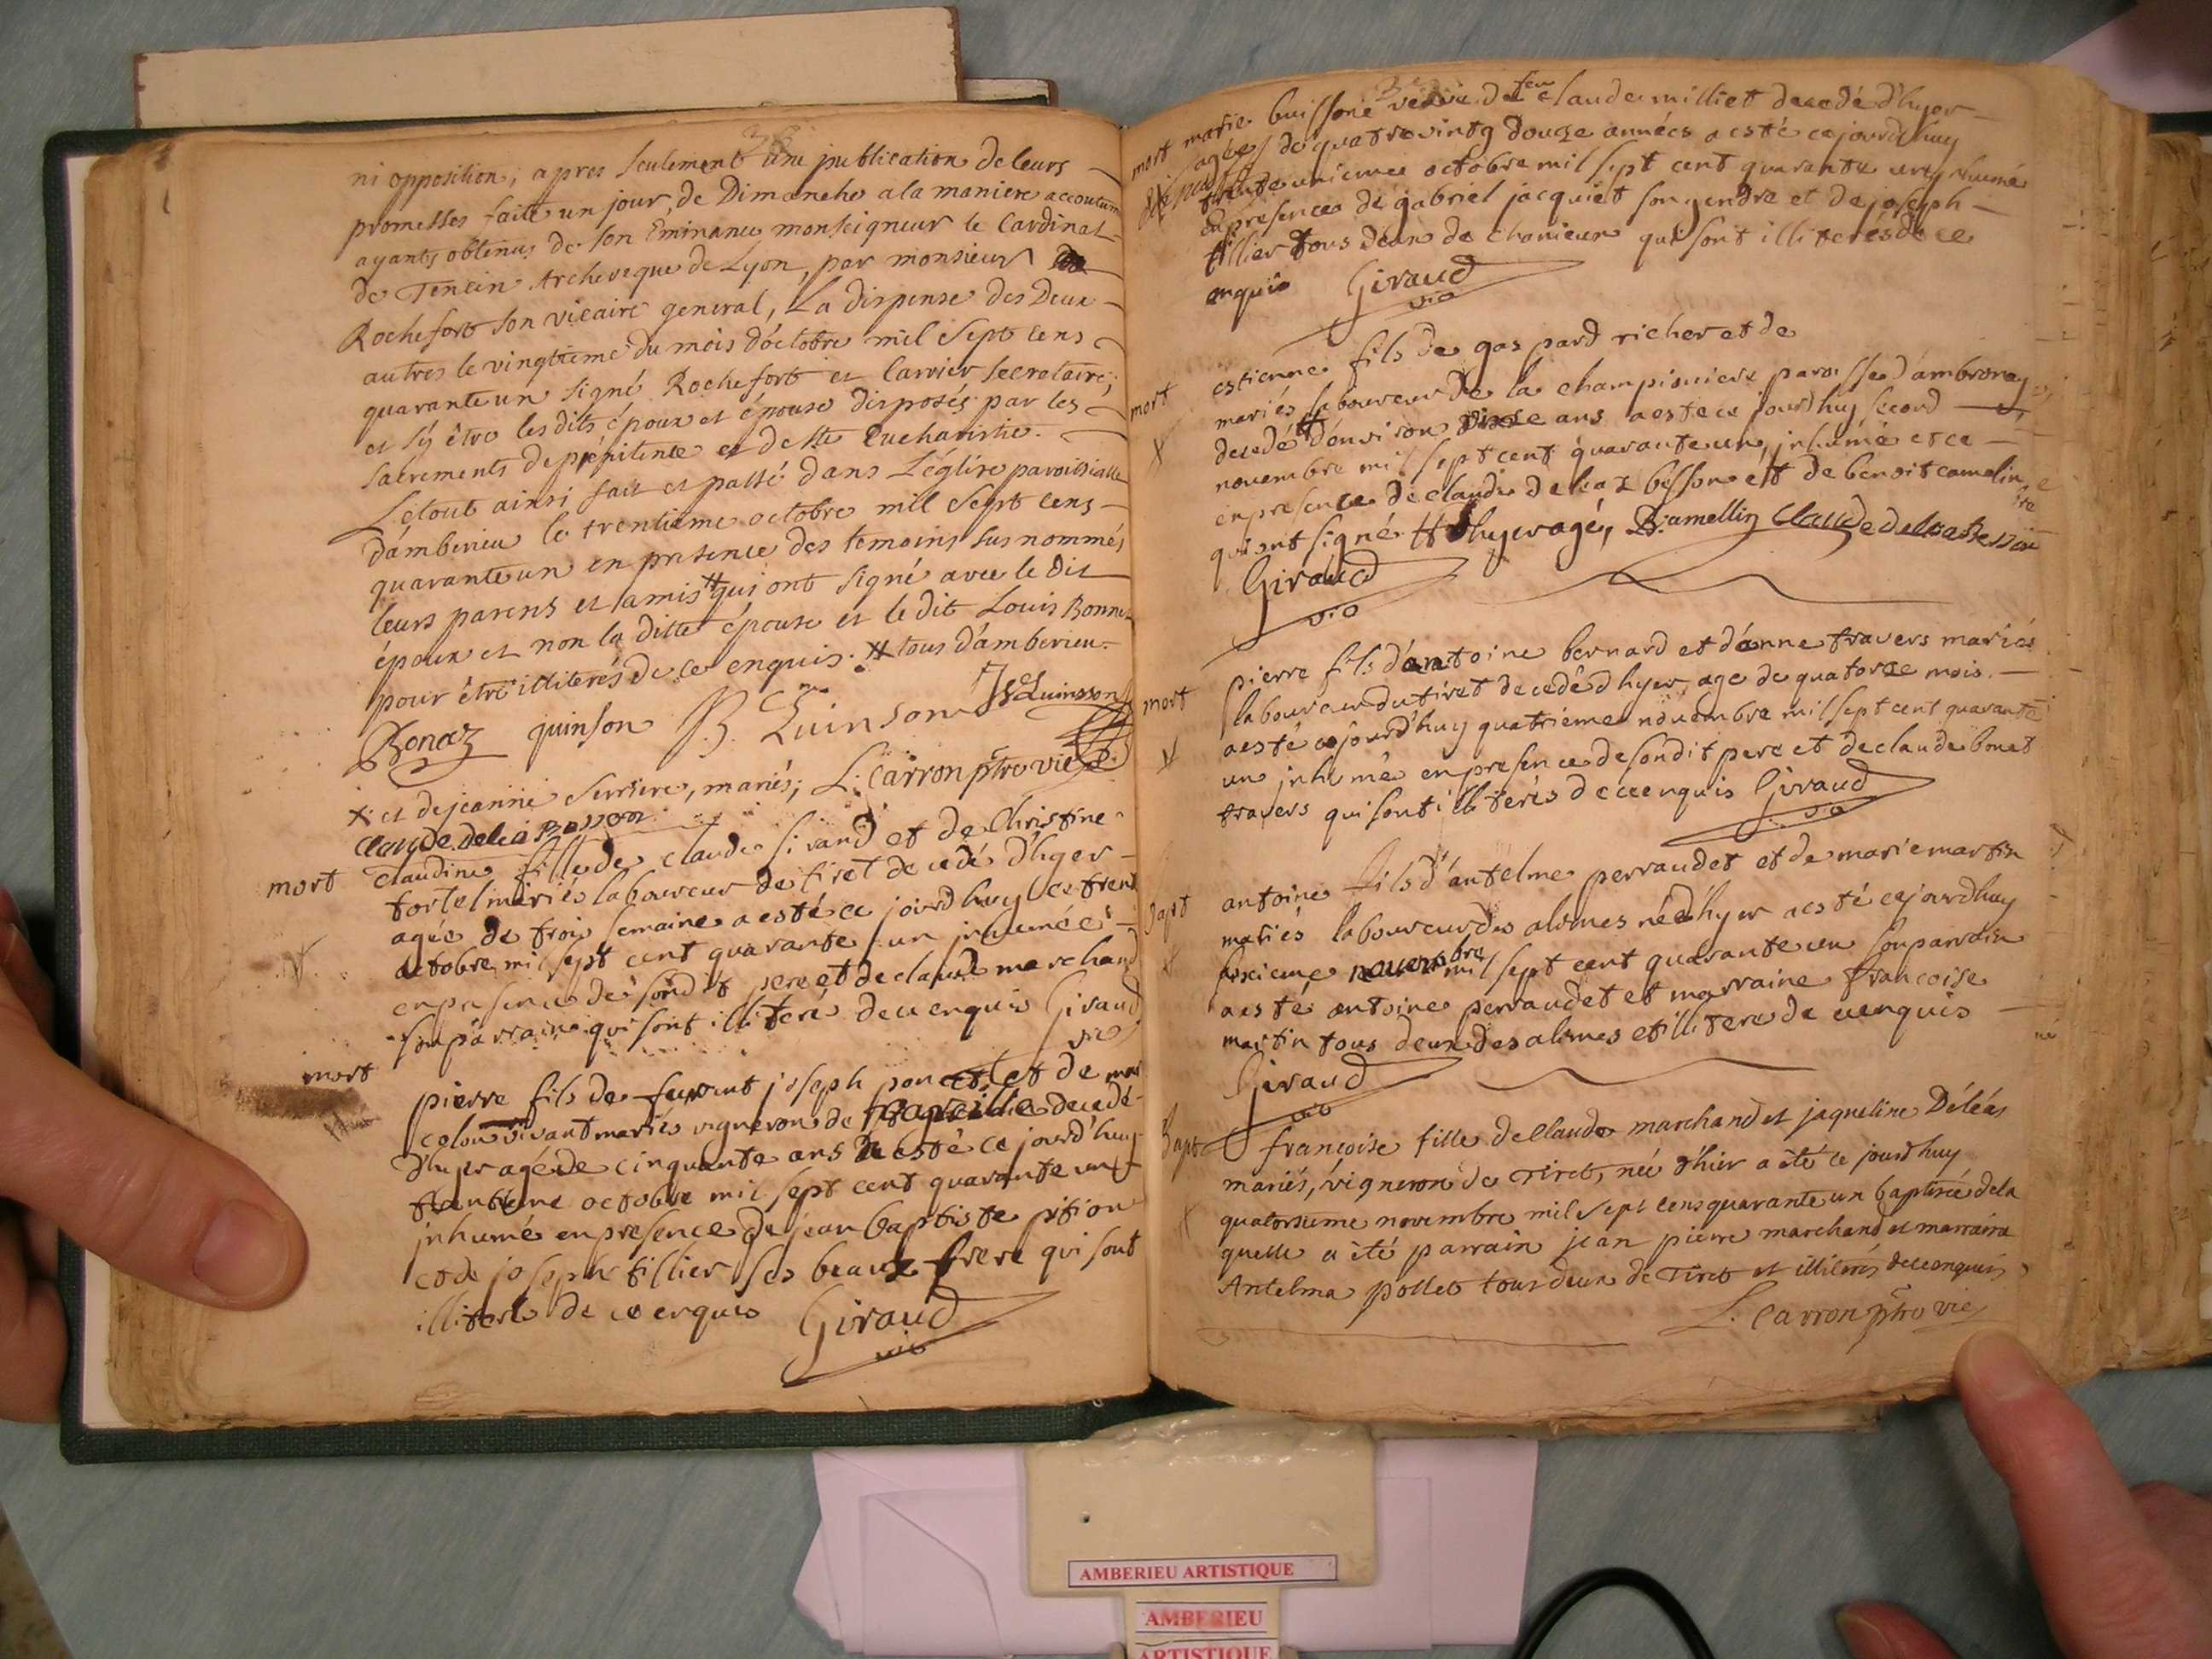 ni opposition, apres seulement une publication de leurs
promesses faite un jour de Dimanche a la maniere accoutum
ayants obtenus de son Eminance monseigneur le Cardinal
de Tencin Archeveque de Lyon, par monsieur
Rochefort son vicaire general, La dispense des Deux
autres le vingtieme du mois d'octobre mil sept cens
quarante un signé Rochefort et Carrier secretaire;
et s'y être les dits époux et épouse disposés par les
sacrements de pénitence et de Ste Eucharistie.
Le tout ainsi fait et passé dans L'église paroissialle
d'amberieu le trentieme octobre mil sept cens
quarante un en presence des temoins sus nommés
leurs parens et amis # qui ont signé avec le dit
époux et non la ditte épouse et le dit Louis Bonnet
pour être illiterés de ce enquis. # tous d'amberieu.
Bonaz quinson B. Quinson Quinsson
x et de jeanne serriere, mariés; L. Carron ptre vic
claude delea Besson
mort claudine fille de claude sirand et de Christine
tortel mariés laboureur de tiret decedé d'hyer
agée de trois semaine a esté ce jourd'huy ce trent
octobre mil sept cent quarante un inhumée
en presence de son dit pere et de claude marchand
son parrain qui sont illiteré de ce enquis Giraud
vic
mort
pierre fils de feu joseph poncet et de mar
colon vivant mariés vigneron de decedé
d'hyer agé de cinquante ans a esté ce jourd'huy
trentieme octobre mil sept cent quarante un
inhumé en presence de jean baptiste pition
et de joseph tillier ses beaux frere qui sont
illiteré de ce enquis Giraud
vic
mort marie buissone veuve de feu claude milliet decedé d'hyer
agée de quatre vintg douze années a esté ce jourd'huy
trente unieme octobre mil sept cent quarante un inhumé
en presence de gabriel jacquiet son gendre et de joseph
tillier tous deux de chanieux qui sont illiterés de ce
enquis Giraud
vic
estienne fils de gaspard richer et de
mort mariés laboureur de la championiere paroisse d'ambronay
decedé # d'environ ans a este ce jourd'huy second
novembre mil sept cent quarante un, inhumé et ce
en presence de claude deleaz besson et de benoit camelin
qui ont signé # d'hyer agé, B. Camellin Claude delea Besson
Giraud
vic
pierre fils d'antoine bernard et d'anne travers mariés
mort laboureur du tiret decedé d'hyer, age de quatorze mois.
a esté ce jourd'huy quatrieme novembre mil sept cent quarante
un inhumé en presence de son dit pere et de claude bonet
travers qui sont illiterés de ce enquis Giraud
vic
antoine fils d'antelme perraudet et de marie martin
bapt mariés laboureur des alimes né d'hyer a esté ce jourd'huy
novembre mil sept cent quarante un son parrain
a esté antoine perraudet et marraine francoise
martin tous deux des alimes et illiteré de ce enquis
Giraud
vic
Bapt françoise fille de Claude marchand et jaqueline Déléas
mariés, vigneron de Tiret, née d'hier a été ce jourd'huy
quatorsieme novembre mil sept cens quarante un baptisée de la
quelle a été parrain jean pierre marchand et marraine
Antelma pollet tous deux de Tiret et illiterés de ce enquis
L. Carron ptre vic
AMBERIEU ARTISTIQUE
AMBERIEU
ARTISTIQUE